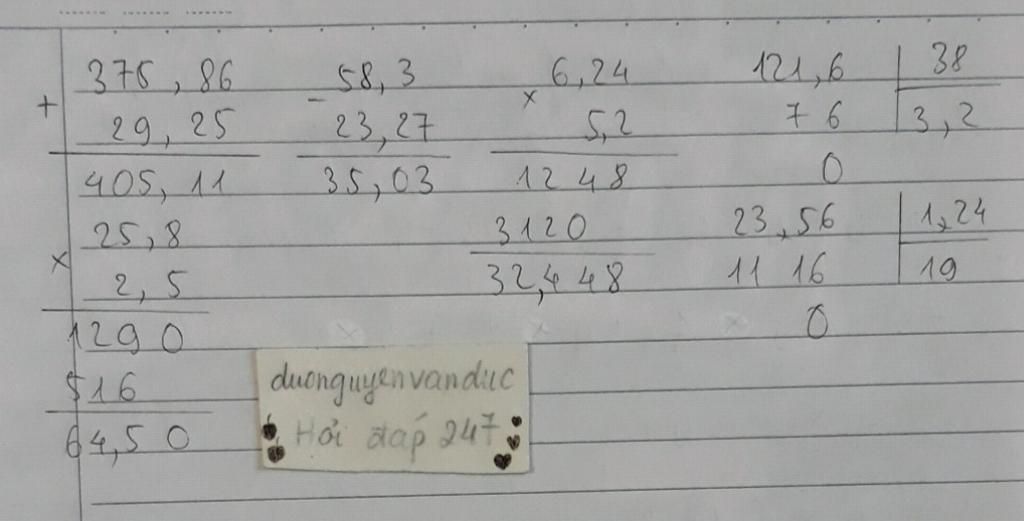 375,86 58,3 6,24 121,6 38
+ - ×
29,25 23,27 5,2 76 3,2
405,11 35,03 1248 0
25,8 3120 23,56 1,24
×
2,5 32,448 11 16 19
1290 0
516
64,50
duonguyenvanduc
Hỏi đáp 247